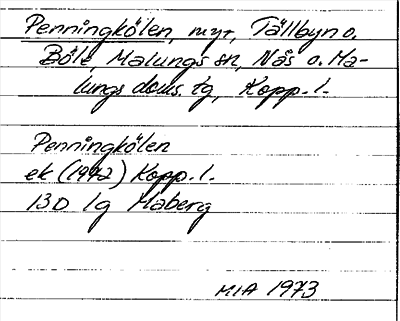 Penningkölen, myr, Tällbyn o.
Böle, Malungs sn, Nås o. Ma-
lungs doms. tg, Kopp. l.
Penningkölen
ek (1972) Kopp. l.
13D 1g Maberg
MIA 1973